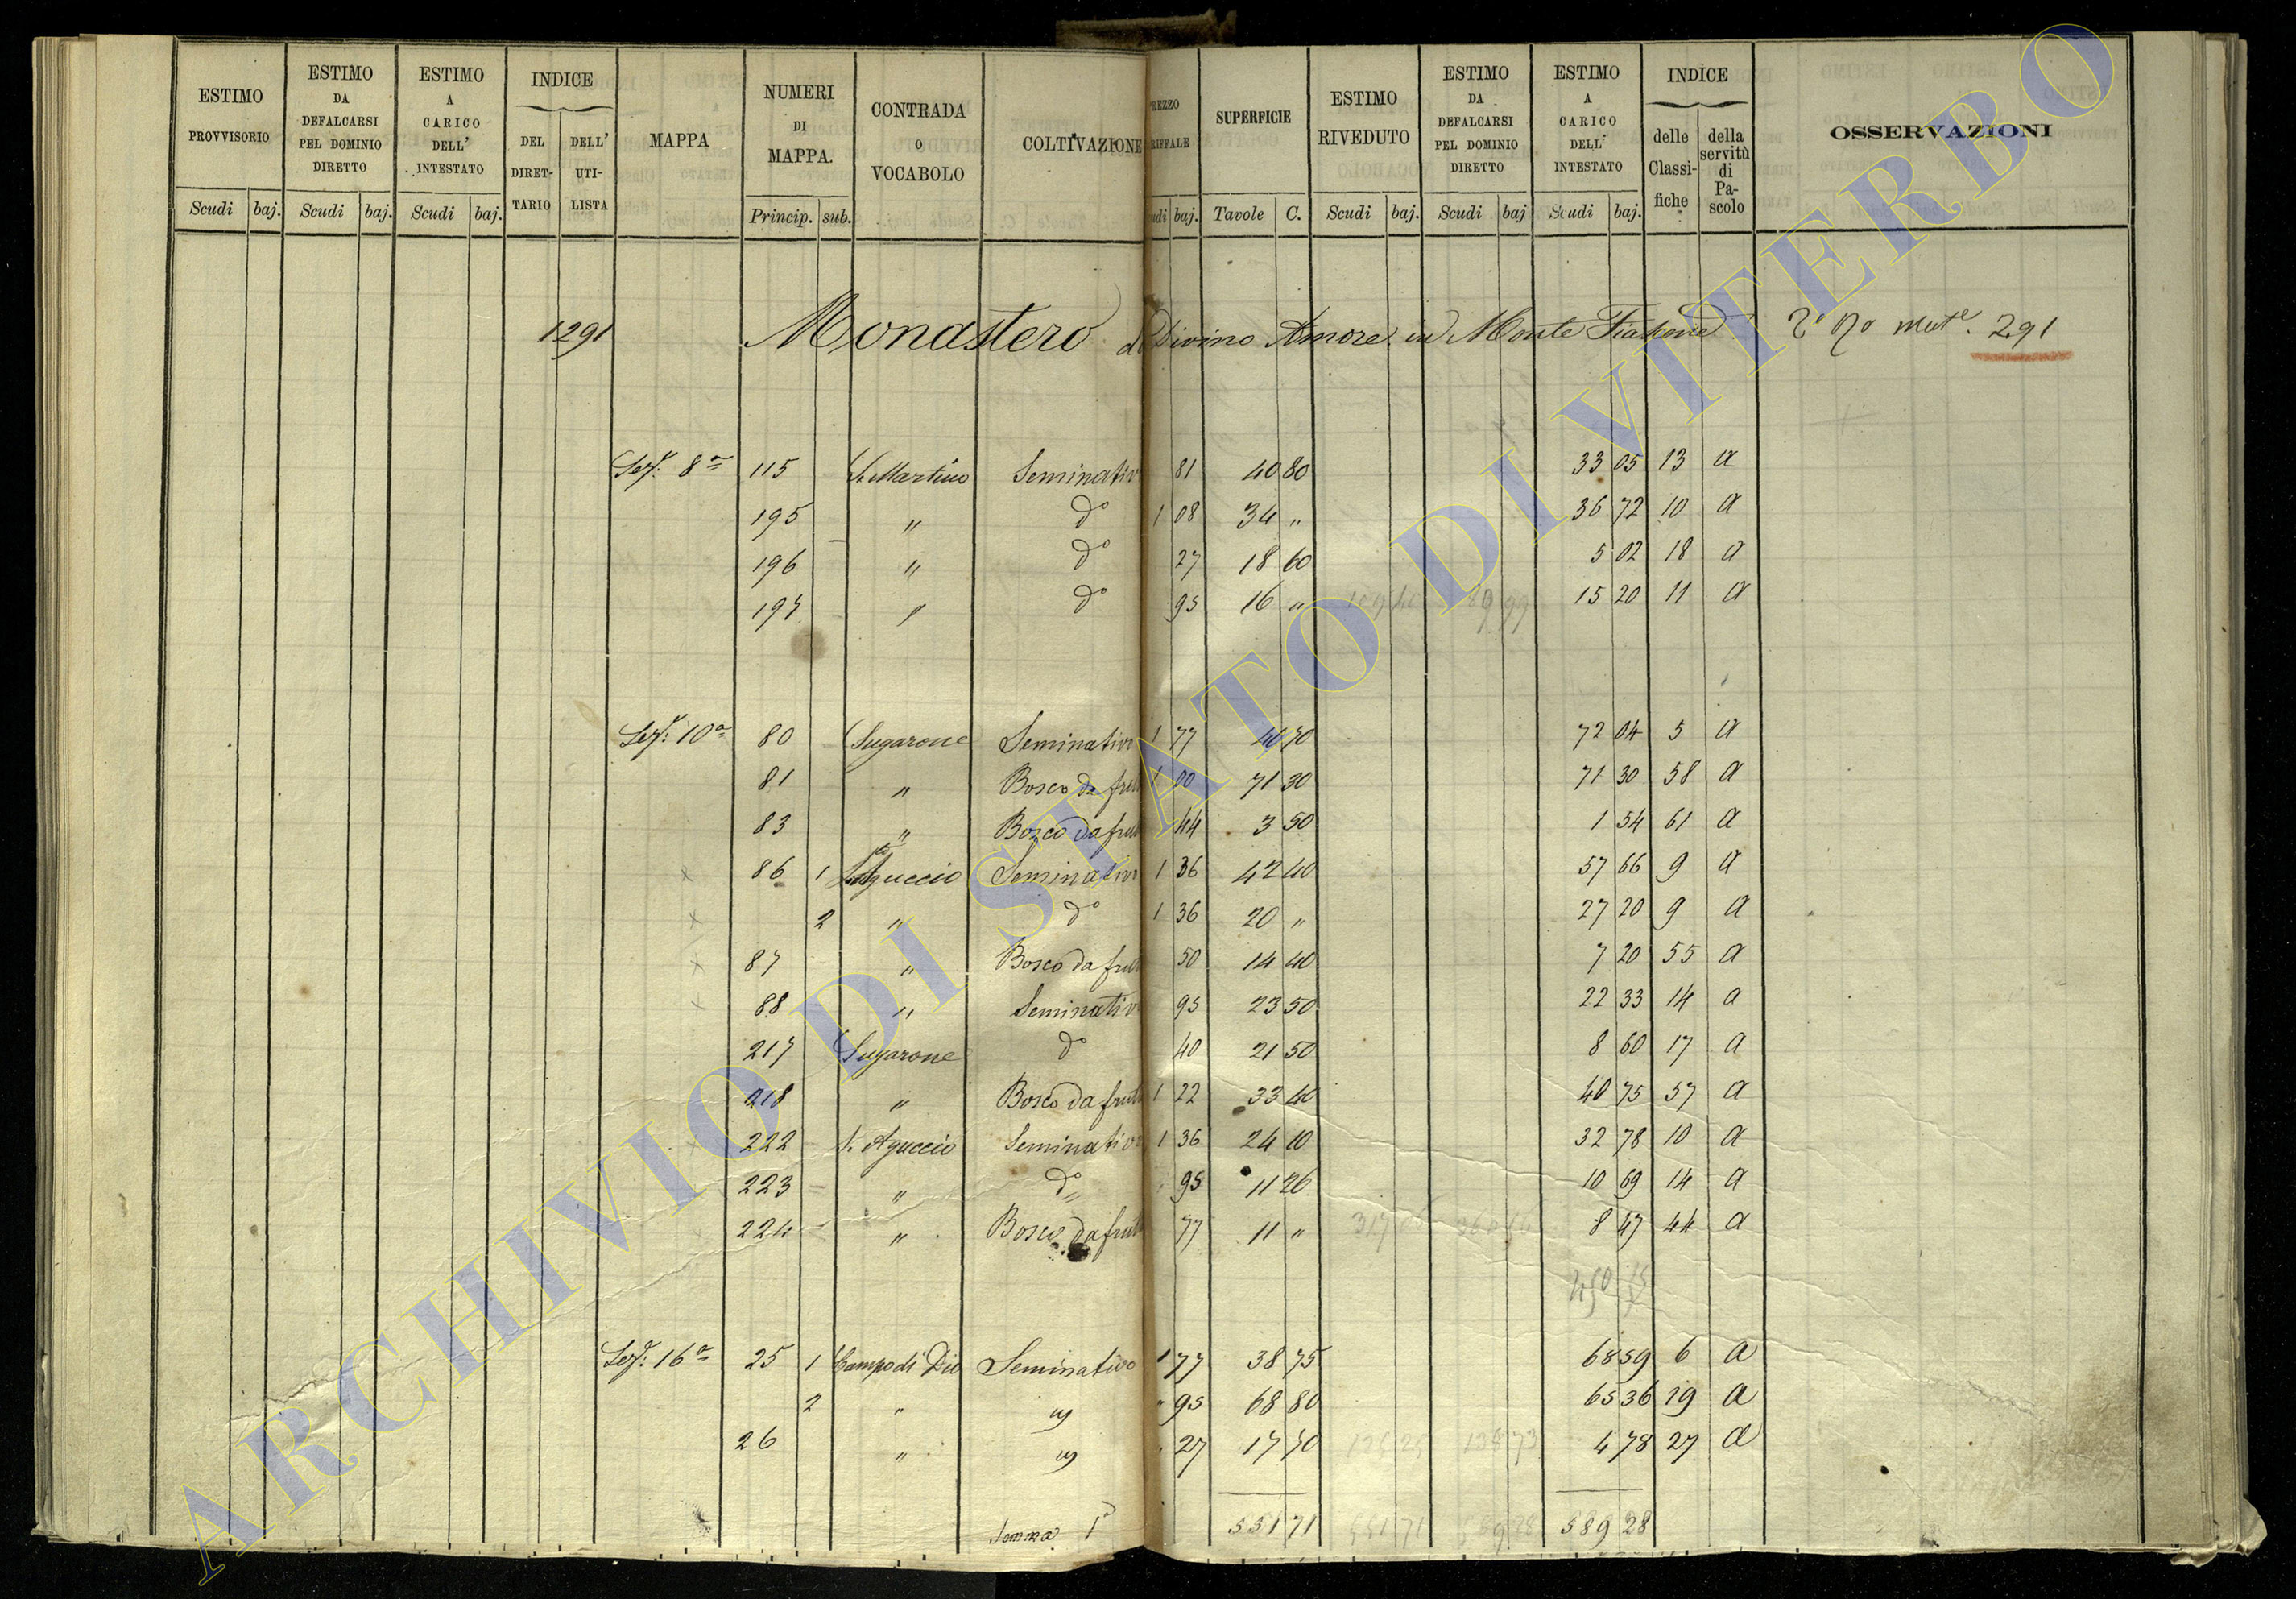 ESTIMO PROVVISORIO | ESTIMO DA DEFALCARSI PEL DOMINIO DIRETTO | ESTIMO A CARICO DELL' INTESTATO | INDICE DEL DIRET-TARIO | DELL' UTI-LISTA | MAPPA | NUMERI DI MAPPA. | CONTRADA O VOCABOLO | COLTIVAZIONE | REZZO RIFFALE | SUPERFICIE | ESTIMO RIVEDUTO | ESTIMO DA DEFALCARSI PEL DOMINIO DIRETTO | ESTIMO A CARICO DELL' INTESTATO | INDICE delle Classi-fiche | della servitù di Pa-scolo | OSSERVAZIONI
Scudi baj. Scudi baj. Scudi baj. Princip. sub. udi baj. Tavole C. Scudi baj. Scudi baj Scudi baj.
1291 Monastero Divino Amore in Monte 291
Sez: 8a 115 S. Martino Seminativ 81 40 80 33 05 13 a
195 " do 1 08 34 " 36 72 10 a
196 " do 27 18 60 5 02 18 a
197 " do 95 16 " 15 20 11 a
Sez: 10a 80 Sugarone Seminativo 1 77 40 70 72 04 5 a
81 " Bosco da frutt 1 00 71 30 71 30 58 a
83 " Bosco da frutt 44 3 50 1 54 61 a
86 1 Seminativo 1 36 42 40 57 66 9 a
2 " do 1 36 20 " 27 20 9 a
87 " Bosco da frutt 50 14 40 7 20 55 a
88 " Seminativ 95 23 50 22 33 14 a
217 Sugarone do 40 21 50 8 60 17 a
218 " Bosco da frutt 1 22 33 40 40 75 57 a
222 S. Aguccio Seminativo 1 36 24 10 32 78 10 a
223 " do 95 11 26 10 69 14 a
224 " Bosco da frutt 77 11 " 8 47 44 a
Sez: 16a 25 1 Campo di Dio Seminativo 1 77 38 75 68 59 6 a
2 " " " 95 68 80 65 36 19 a
26 " " 27 17 70 4 78 27 a
Somma 1a 551 71 551 71 589 28
ARCHIVIO DI STATO DI VITERBO